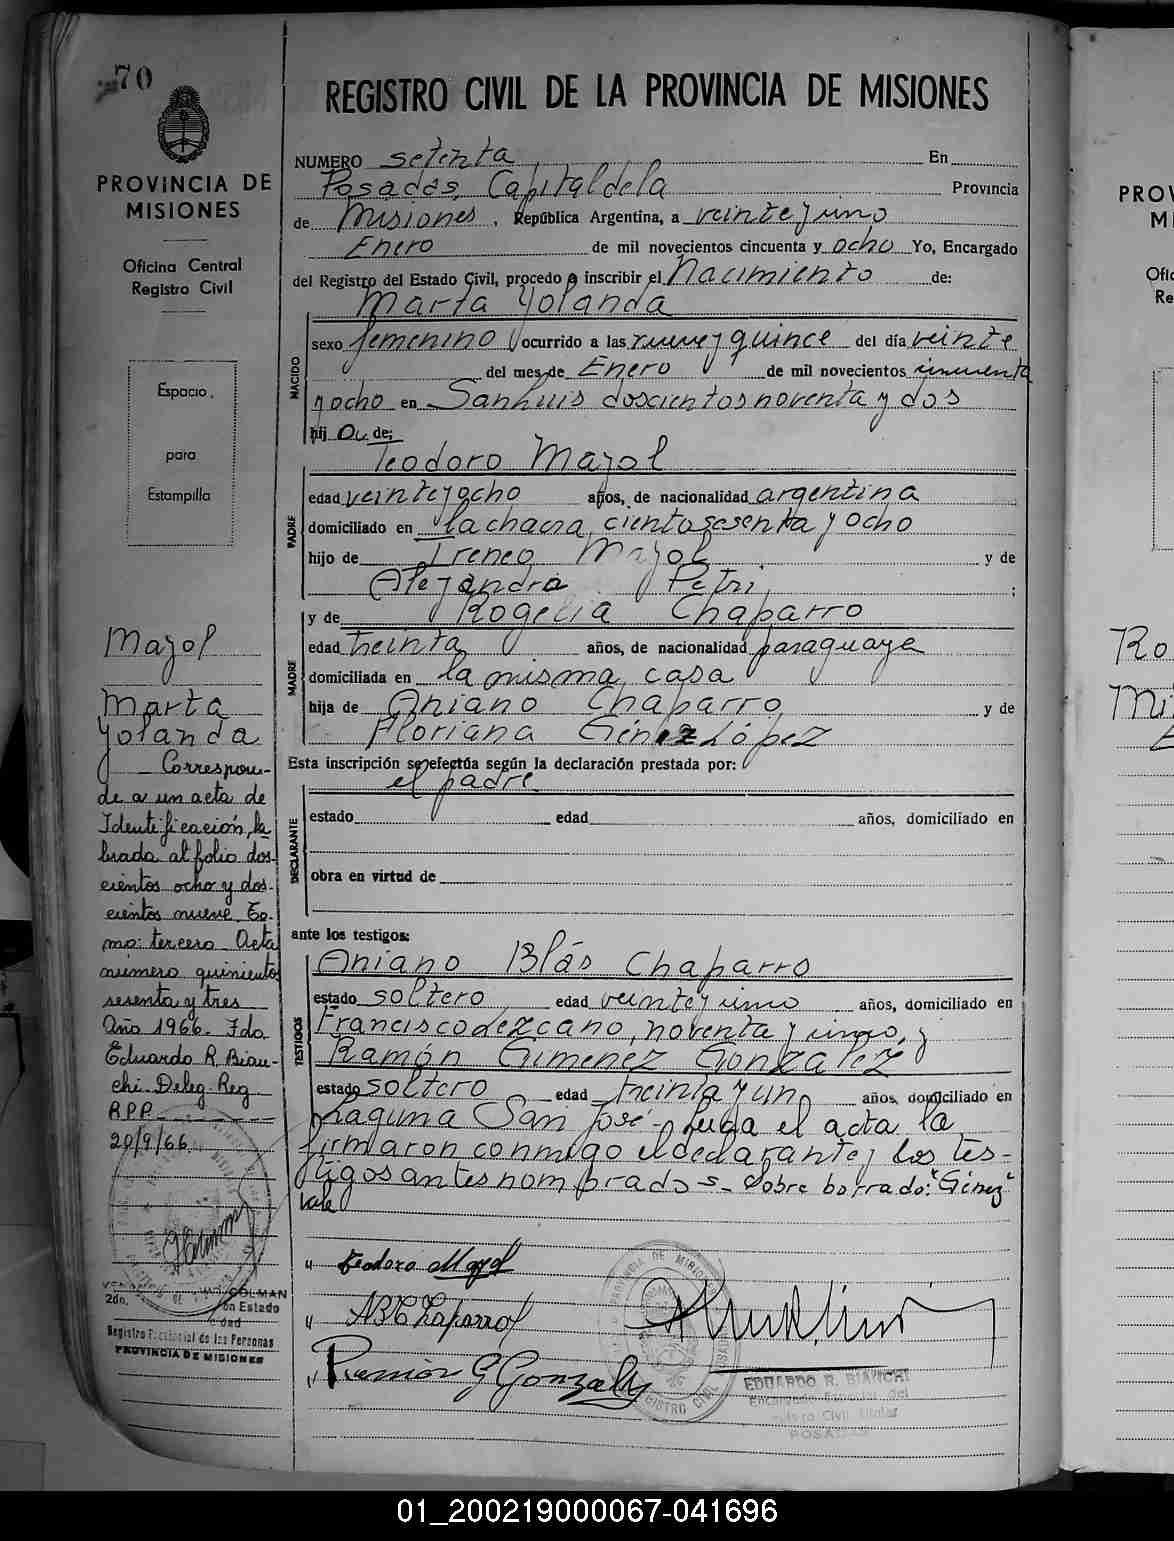 70
PROVINCIA DE
MISIONES
Oficina Central
Registro Civil
Espacio
para
Estampilla
Mazol
Marta
Yolanda
Correspon-
de a un acta de
Identificación, la
brada al folio dos-
cientos ocho y dos-
cientos nueve. To-
mo: tercero. Acta
número quinientos
sesenta y tres
Año 1966. Fdo.
Eduardo R. Bian-
chi. Deleg. Reg.
R.P.P.
20/9/66.
COLMAN
2do.
Registro Provincial de las Personas
PROVINCIA DE MISIONES
REGISTRO CIVIL DE LA PROVINCIA DE MISIONES
NUMERO setenta, En
Posadas, Capital de la Provincia
de Misiones, República Argentina, a veinte y uno
Enero de mil novecientos cincuenta y ocho Yo, Encargado
del Registro del Estado Civil, procedo a inscribir el Nacimiento de:
Marta Yolanda
NACIDO
sexo femenino ocurrido a las nueve y quince del día veinte
del mes de Enero de mil novecientos cincuenta
y ocho en San Luis doscientos noventa y dos
hij a de:
Teodoro Mazol
PADRE
edad veinte y ocho años, de nacionalidad argentina
domiciliado en la chacra ciento sesenta y ocho
hijo de Ireneo Mazol y de
Alejandra Petri;
y de Rogelia Chaparro
MADRE
edad treinta años, de nacionalidad paraguaya
domiciliada en la misma casa
hija de Aniano Chaparro y de
Floriana Ginez López
Esta inscripción se efectúa según la declaración prestada por:
el padre
DECLARANTE
estado edad años, domiciliado en
obra en virtud de
ante los testigos:
Aniano Blás Chaparro
TESTIGOS
estado soltero edad veinte y uno años, domiciliado en
Francisco de Ezcano, noventa y uno, y
Ramón Gimenez Gonzalez
estado soltero edad treinta y un años, domiciliado en
Laguna San José - Leida el acta la
firmaron conmigo el declarante y los tes-
tigos antes nombrados - Sobre borrado: "Ginez"
vale
" Teodoro Mazol
" A B Chaparro
" Ramón G Gonzalez
PROVINCIA DE MISIONES
REGISTRO CIVIL
EDUARDO R. BIANCHI
Encargado Especial del
Registro Civil Titular
POSADAS
01_200219000067-041696